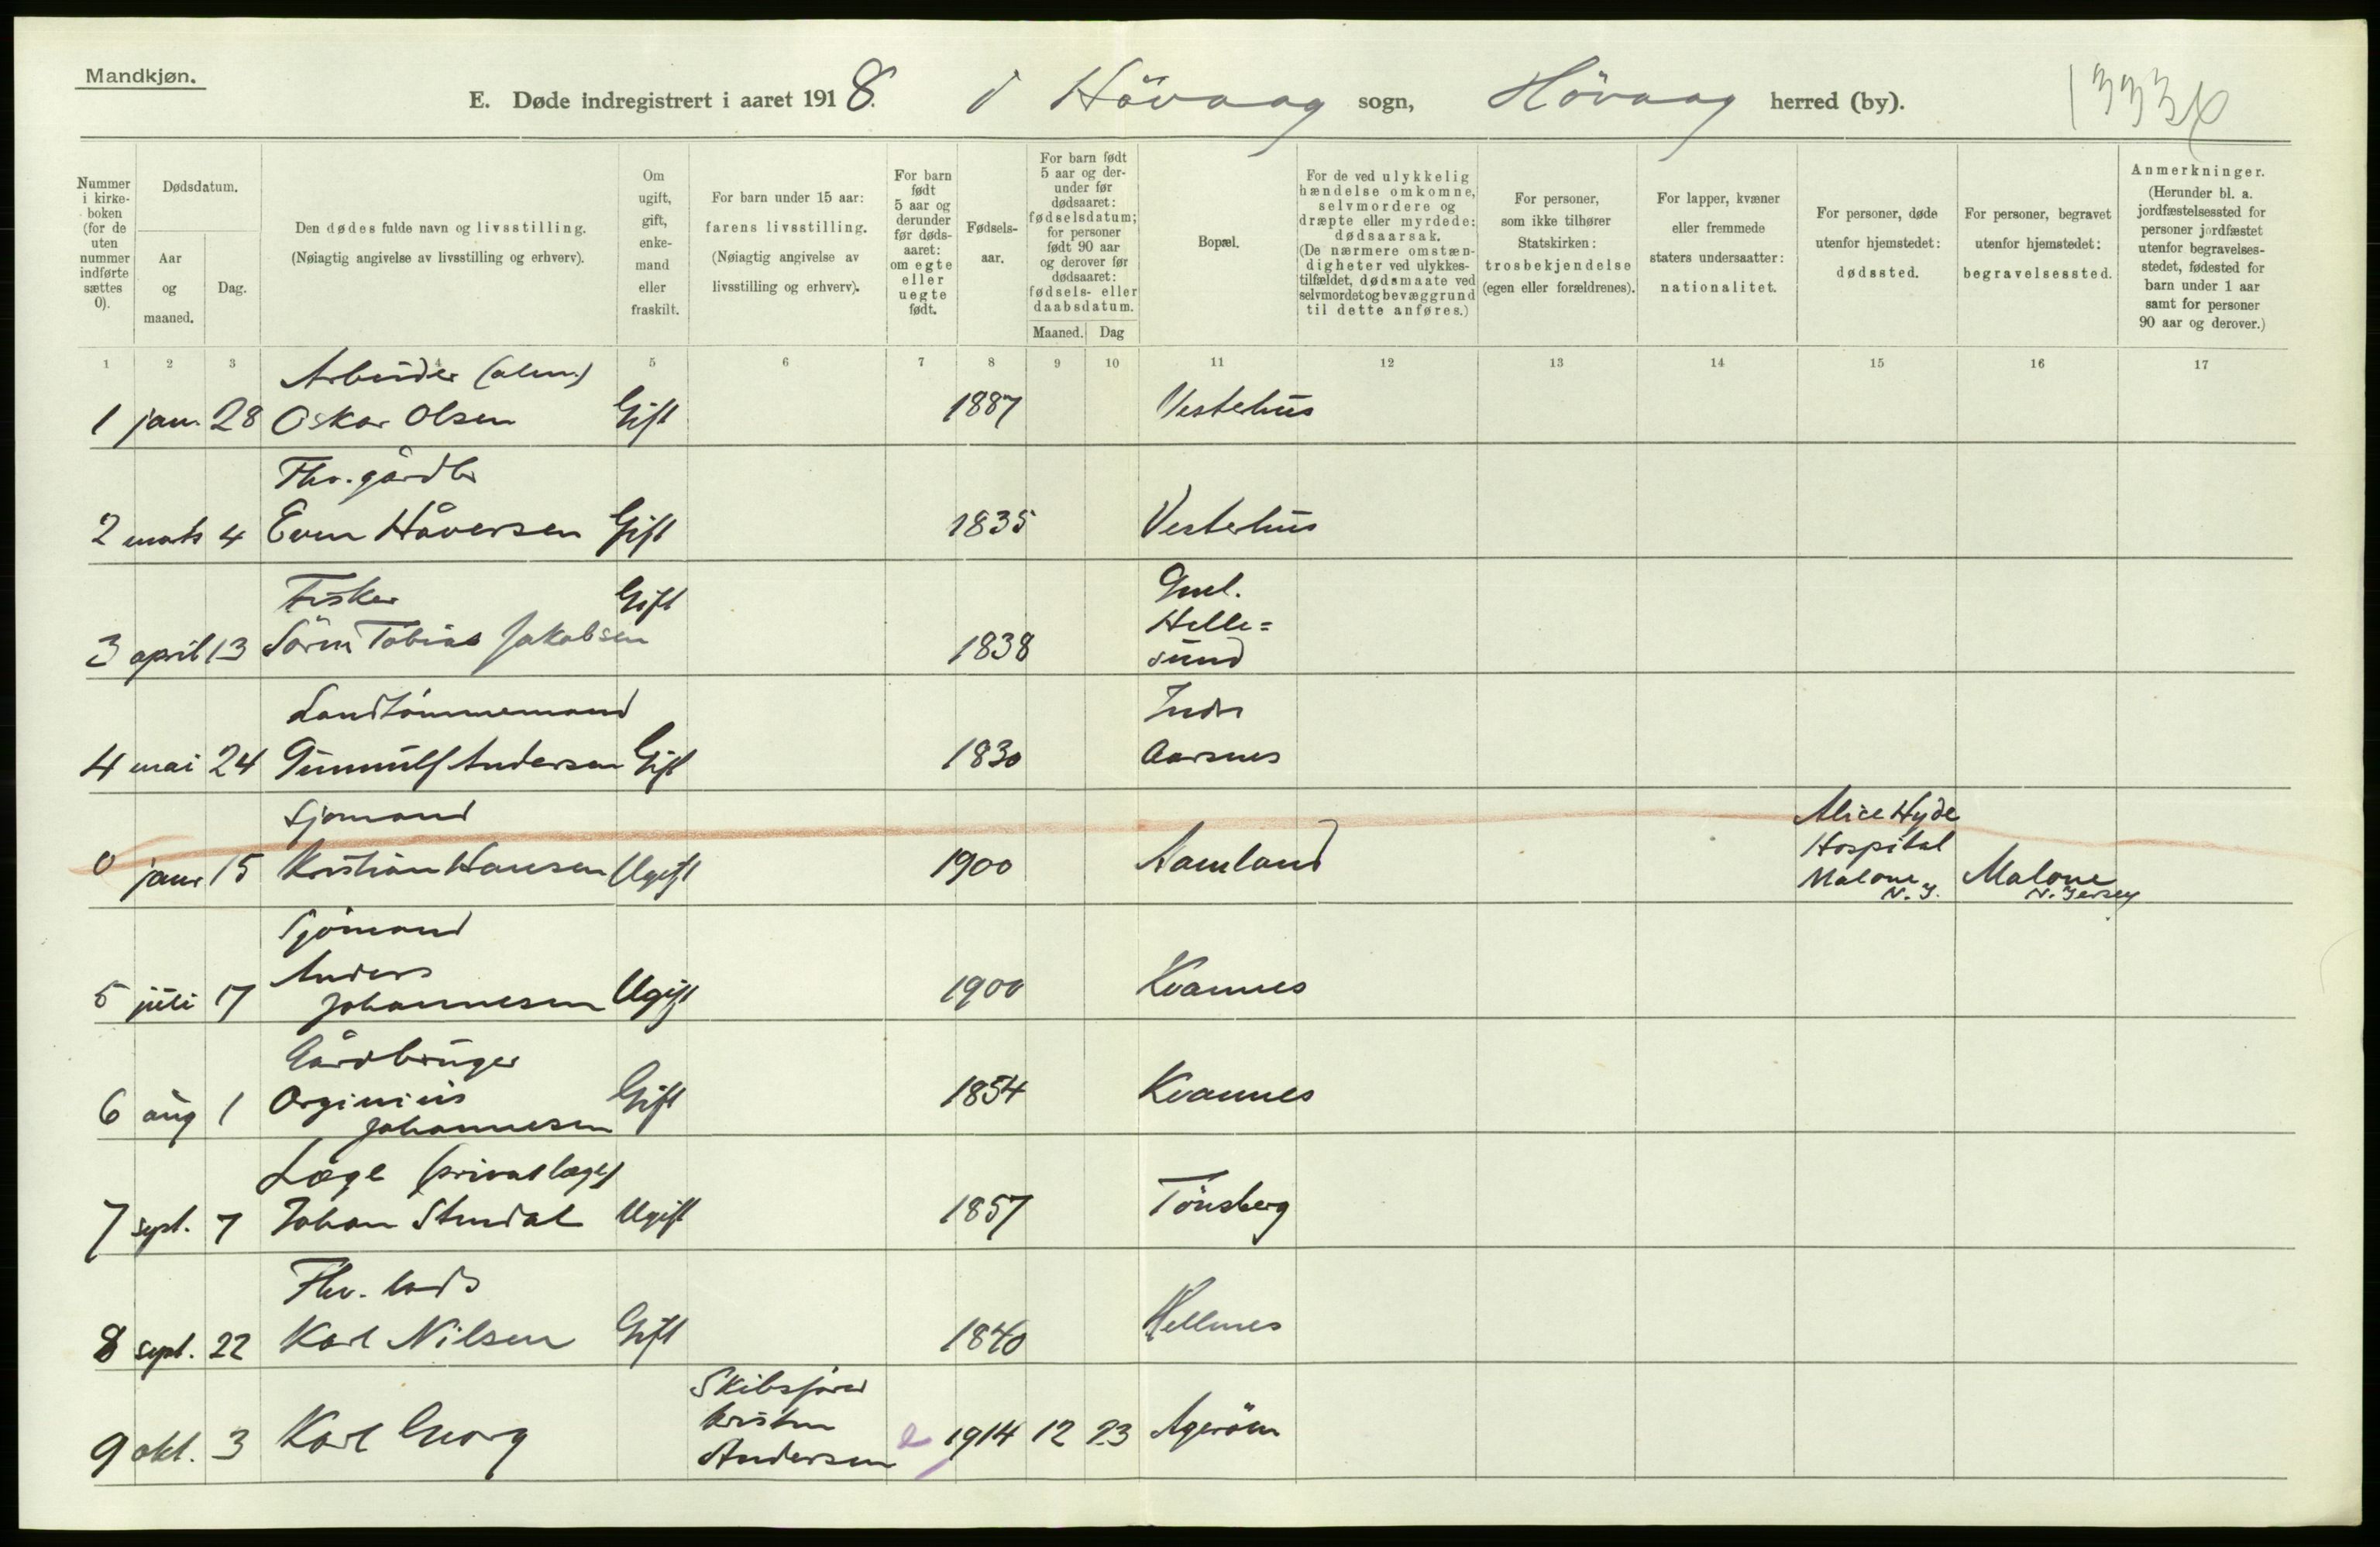 Mandkjøn.
E. Døde indregistrert i aaret 1918. i Hövaag sogn, Hövaag herred (by).
1333
Nummer i kirke-boken (for de uten nummer indførte sættes 0).
Dødsdatum.
Aar og maaned.
Dag.
Den dødes fulde navn og livsstilling. (Nøiagtig angivelse av livsstilling og erhverv).
Om ugift, gift, enke-mand eller fraskilt.
For barn under 15 aar: farens livsstilling. (Nøiagtig angivelse av livsstilling og erhverv).
For barn født 5 aar og derunder før døds-aaret: om egte eller uegte født.
Fødsels-aar.
For barn født 5 aar og der-under før dødsaaret: fødselsdatum; for personer født 90 aar og derover før dødsaaret: fødsels- eller daabsdatum.
Maaned. Dag
Bopæl.
For de ved ulykkelig hændelse omkomne, selvmordere og dræpte eller myrdede: dødsaarsak. (De nærmere omstæn-digheter ved ulykkes-tilfældet, dødsmaate ved selvmordet og bevæggrund til dette anføres.)
For personer, som ikke tilhører Statskirken: trosbekjendelse (egen eller forældrenes).
For lapper, kvæner eller fremmede staters undersaatter: nationalitet.
For personer, døde utenfor hjemstedet: dødssted.
For personer, begravet utenfor hjemstedet: begravelsessted.
Anmerkninger. (Herunder bl. a. jordfæstelsessted for personer jordfæstet utenfor begravelses-stedet, fødested for barn under 1 aar samt for personer 90 aar og derover.)
1 2 3 4 5 6 7 8 9 10 11 12 13 14 15 16 17
Arbeider (alm.)
1 jan. 28 Oskar Olsen Gift 1887 Vestehus
Fhv. gårdbr
2 mars 4 Even Håversen Gift 1835 Vesterhus
Fisker Gift Gml.
Helle=
3 april 13 Sörm Tobias Jakobsen 1838 sund
Landtömmermand Indr
4 mai 24 Gunnulf Andersen Gift 1830 Aarsnes
Sjomand Alice Hyde
Hospital
0 janr 15 Kristian Hansen Ugift 1900 Aamland Malone N.J. Malone N. Jersey
Sjömand
Anders
5 juli 17 Johannesen Ugift 1900 Kvannes
Gårdbruger
6 aug 1 Orginius Gift 1854 Kvannes
Johannesen
Læge (privatlæge)
7 sept. 7 Johan Stendal Ugift 1857 Tönsberg
Fhv. lods
8 sept. 22 Karl Nilsen Gift 1840 Hellenes
Skibsförer
Kristen
9 okt. 3 Karl Georg Andersen e 1914 12 23 Ageröen